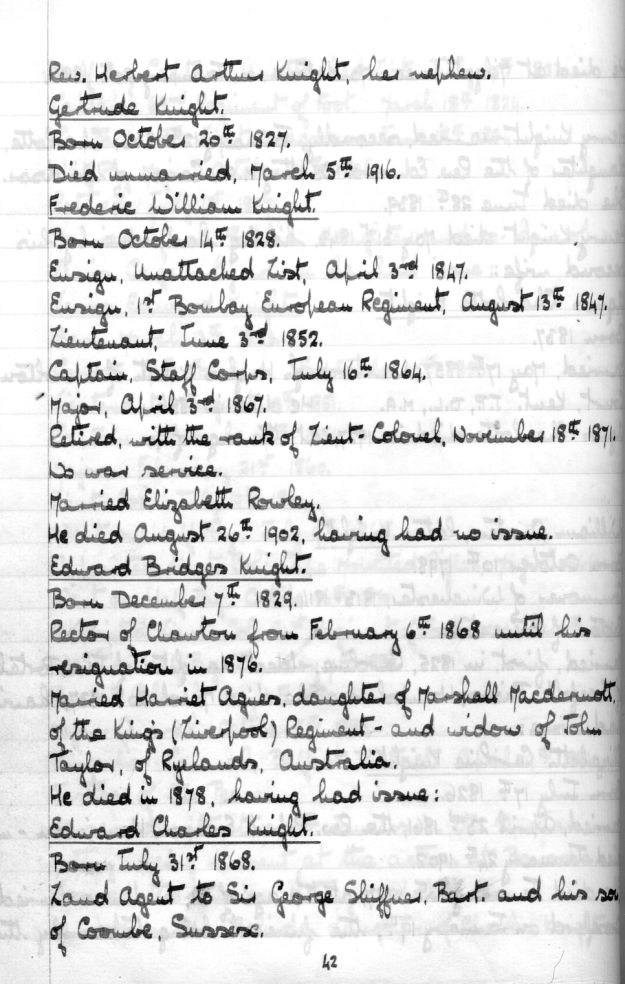 Rev. Herbert Arthur Knight, her nephew.
Gertrude Knight.
Born October 20th 1827.
Died unmarried, March 5th 1916.
Frederic William Knight.
Born October 14th 1828.
Ensign, Unattached List, April 3rd 1847.
Ensign, 1st Bombay European Regiment, August 13th 1847.
Lieutenant, June 3rd 1852.
Captain, Staff Corps, July 16th 1864.
Major, April 3rd 1867.
Retired, with the rank of Lieut-Colonel, November 18th 1871.
No war service.
Married Elizabeth Rowley.
He died August 26th 1902, having had no issue.
Edward Bridges Knight.
Born December 7th 1829.
Rector of Chawton from February 6th 1868 until his
resignation in 1876.
Married Harriet Agnes, daughter of Marshall Macdermott,
of the King's (Liverpool) Regiment - and widow of John
Taylor, of Ryelands, Australia.
He died in 1878, having had issue:
Edward Charles Knight.
Born July 31st 1868.
Land Agent to Sir George Shiffner, Bart. and his so
of Coombe, Sussex.
42